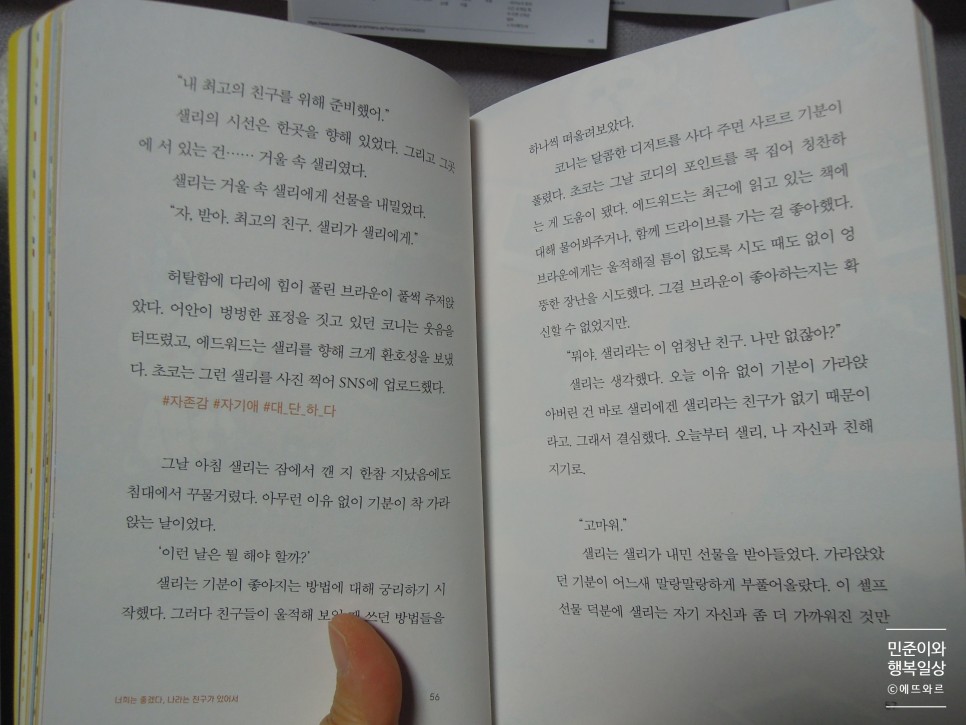 “내 최고의 친구를 위해 준비했어.”
샐리의 시선은 한곳을 향해 있었다. 그리고 그곳
에 서 있는 건…… 거울 속 샐리였다.
샐리는 거울 속 샐리에게 선물을 내밀었다.
“자, 받아. 최고의 친구. 샐리가 샐리에게.”
허탈함에 다리에 힘이 풀린 브라운이 풀썩 주저앉
았다. 어안이 벙벙한 표정을 짓고 있던 코니는 웃음을
터뜨렸고, 에드워드는 샐리를 향해 크게 환호성을 보냈
다. 초코는 그런 샐리를 사진 찍어 SNS에 업로드했다.
#자존감 #자기애 #대_단_하_다
그날 아침 샐리는 잠에서 깬 지 한참 지났음에도
침대에서 꾸물거렸다. 아무런 이유 없이 기분이 착 가라
앉는 날이었다.
‘이런 날은 뭘 해야 할까?’
샐리는 기분이 좋아지는 방법에 대해 궁리하기 시
작했다. 그러다 친구들이 울적해 쓰던 방법들을
너희는 좋겠다, 나라는 친구가 있어서
56
하나씩 떠올려보았다.
코니는 달콤한 디저트를 사다 주면 사르르 기분이
풀렸다. 초코는 그날 코디의 포인트를 콕 집어 칭찬하
는 게 도움이 됐다. 에드워드는 최근에 읽고 있는 책에
대해 물어봐주거나, 함께 드라이브를 가는 걸 좋아했다.
브라운에게는 울적해질 틈이 없도록 시도 때도 없이 엉
뚱한 장난을 시도했다. 그걸 브라운이 좋아하는지는 확
신할 수 없었지만.
“뭐야. 샐리라는 이 엄청난 친구. 나만 없잖아?”
샐리는 생각했다. 오늘 이유 없이 기분이 가라앉
아버린 건 바로 샐리에겐 샐리라는 친구가 없기 때문이
라고. 그래서 결심했다. 오늘부터 샐리, 나 자신과 친해
지기로.
“고마워.”
샐리는 샐리가 내민 선물을 받아들었다. 가라앉았
던 기분이 어느새 말랑말랑하게 부풀어올랐다. 이 셀프
선물 덕분에 샐리는 자기 자신과 좀 더 가까워진 것만
민준이와
행복일상
©에뜨와르